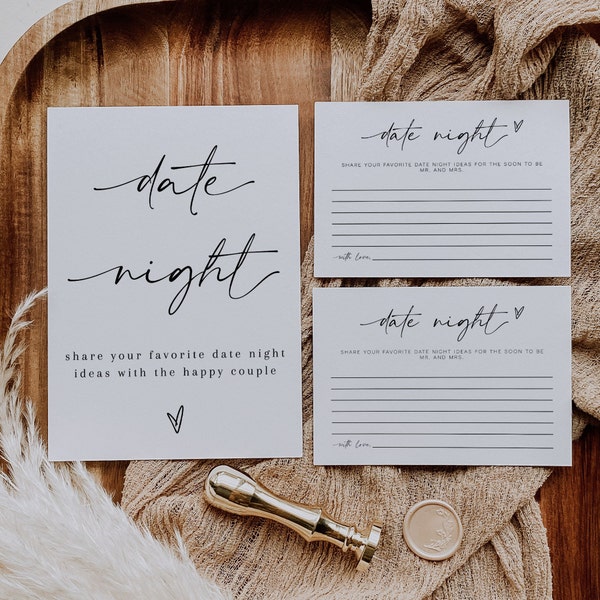 date
night
share your favorite date night
ideas with the happy couple
date night
SHARE YOUR FAVORITE DATE NIGHT IDEAS FOR THE SOON TO BE
MR. AND MRS.
with love,
date night
SHARE YOUR FAVORITE DATE NIGHT IDEAS FOR THE SOON TO BE
MR. AND MRS.
with love,